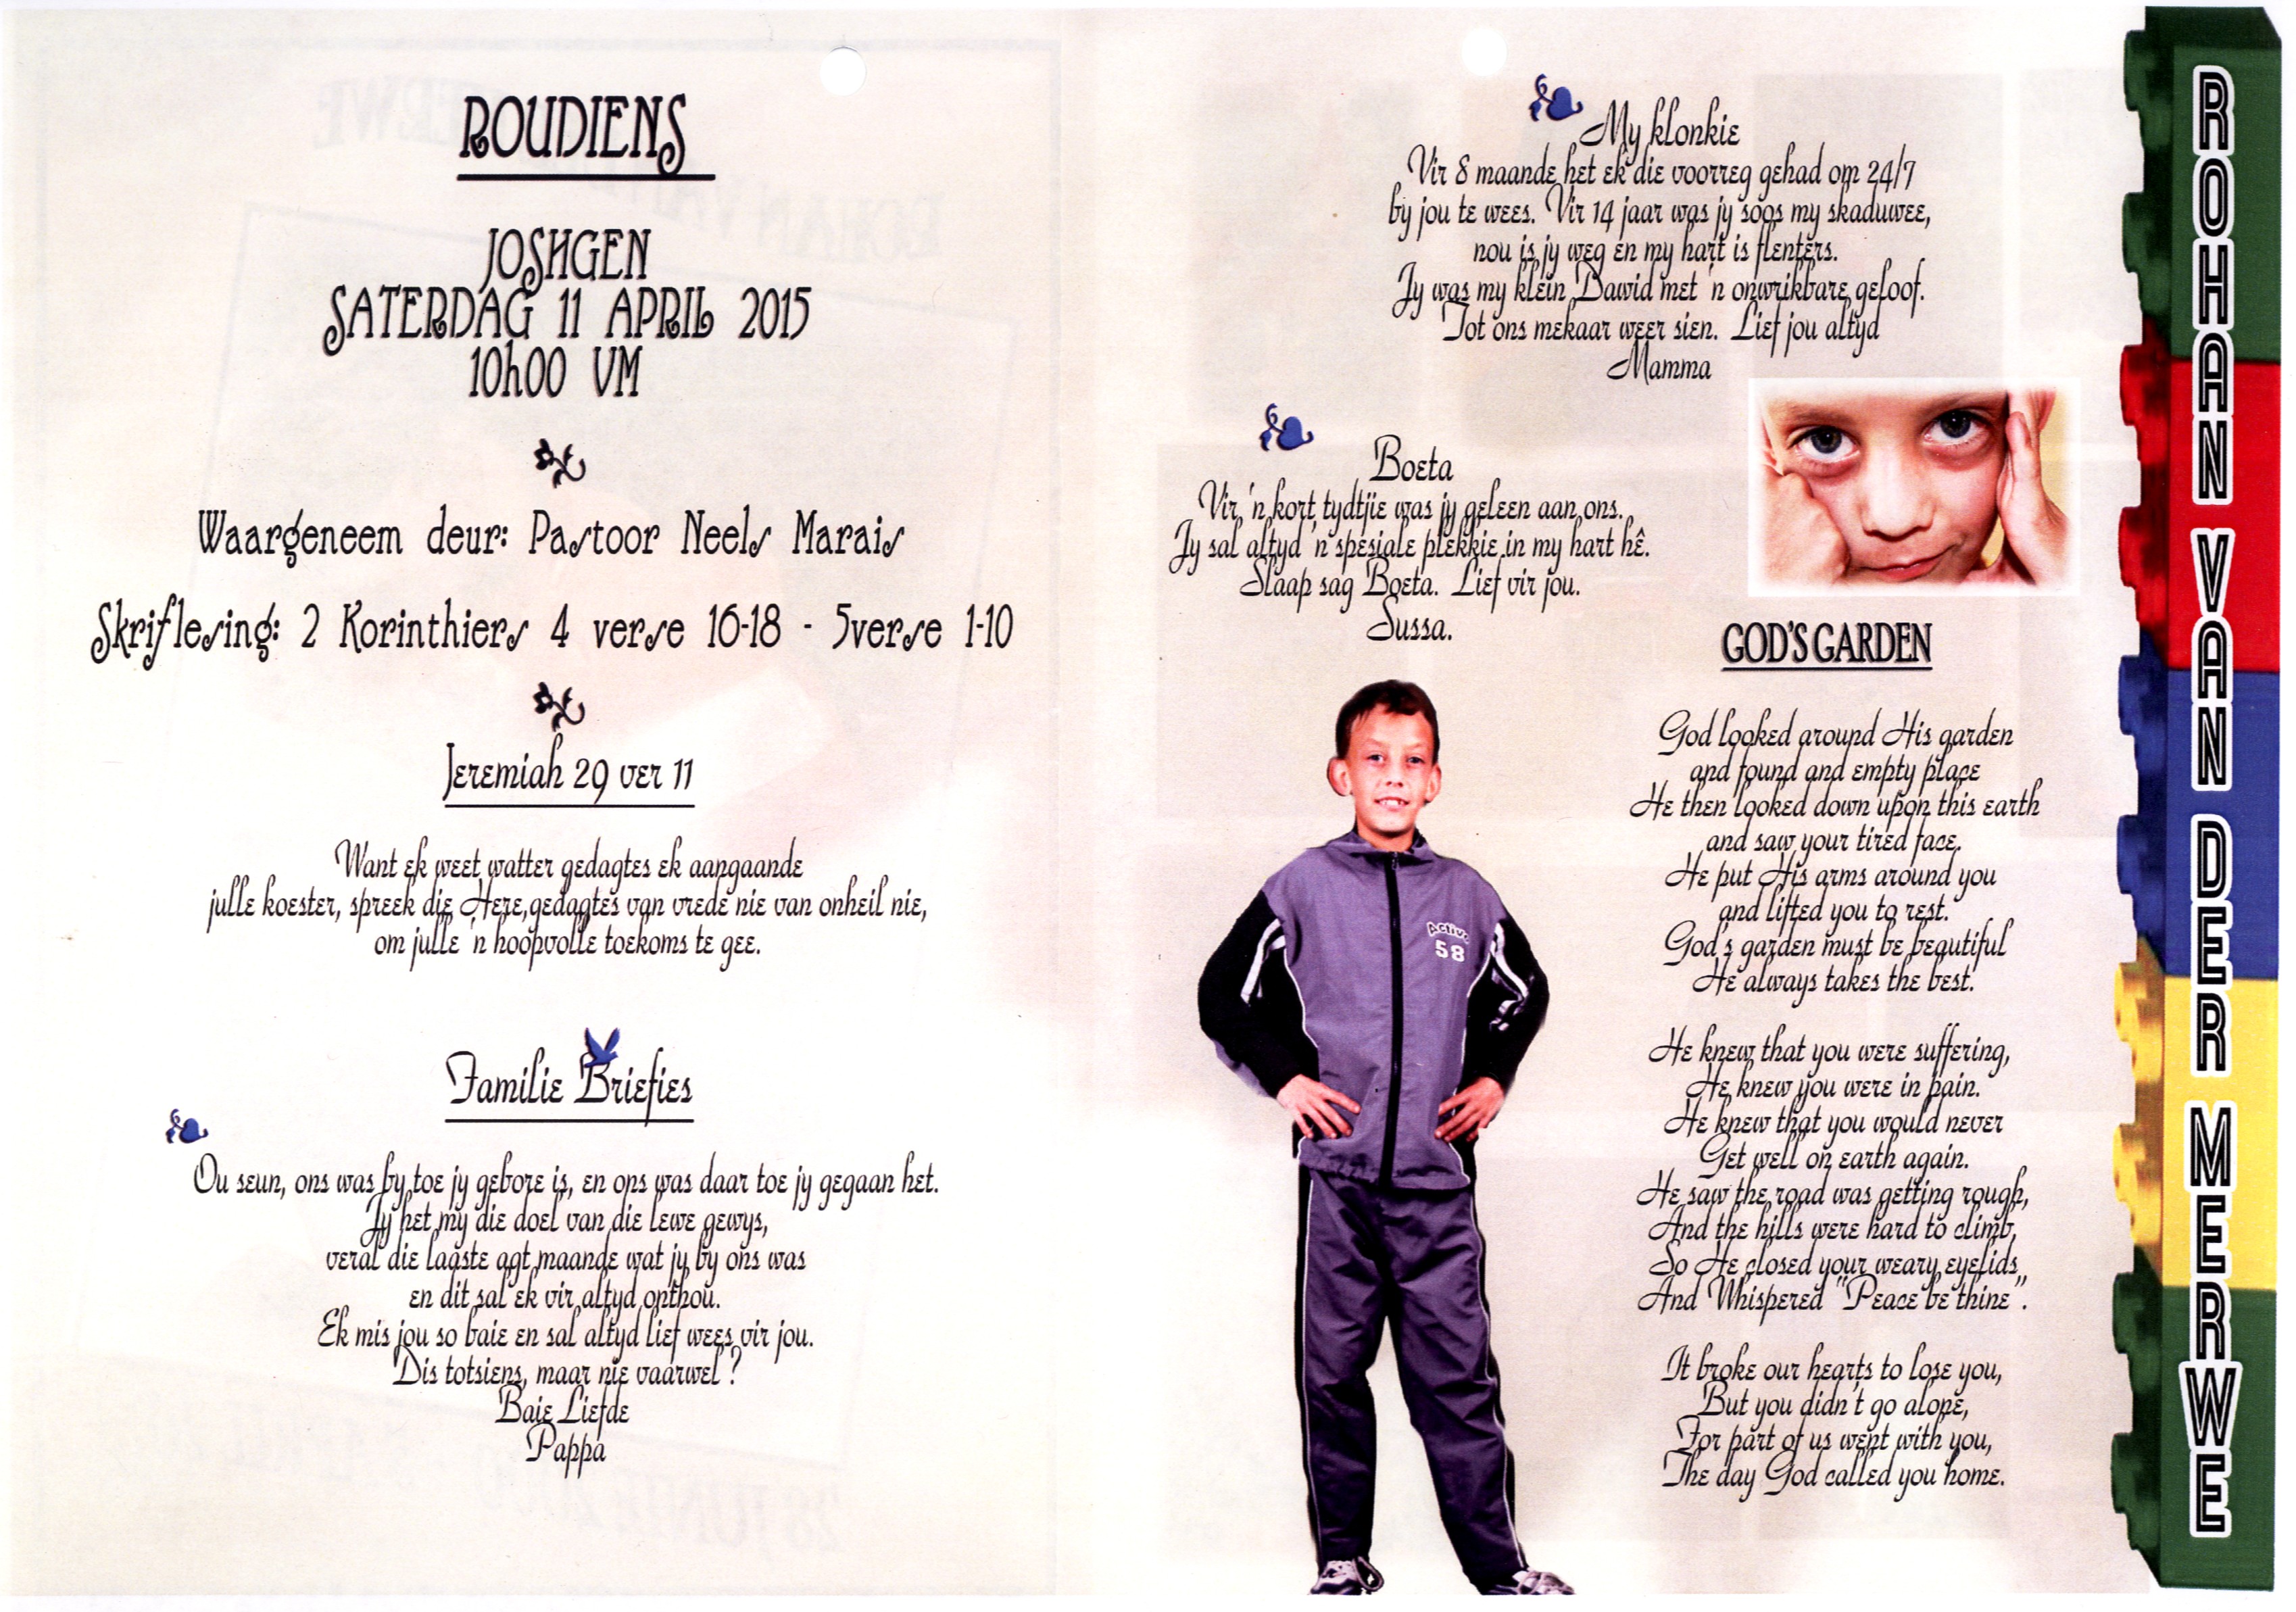 ROUDIENS
JOSHGEN
SATERDAG 11 APRIL 2015
10h00 VM
Waargeneem deur: Pastoor Neels Marais
Skriflesing: 2 Korinthiers 4 verse 16-18 - 5verse 1-10
Jeremiah 29 ver 11
Want ek weet watter gedagtes ek aangaande
julle koester, spreek die Here,gedagtes van vrede nie van onheil nie,
om julle 'n hoopvolle toekoms te gee.
Familie Briefies
Ou seun, ons was by toe jy gebore is, en ons was daar toe jy gegaan het.
Jy het my die doel van die lewe gewys,
veral die laaste agt maande wat jy by ons was
en dit sal ek vir altyd onthou.
Ek mis jou so baie en sal altyd lief wees vir jou.
Dis totsiens, maar nie vaarwel ?
Baie Liefde
Pappa
My klonkie
Vir 8 maande het ek die voorreg gehad om 24/7
by jou te wees. Vir 14 jaar was jy soos my skaduwee,
nou is jy weg en my hart is flenters.
Jy was my klein Dawid met 'n onwrikbare geloof.
Tot ons mekaar weer sien. Lief jou altyd
Mamma
Boeta
Vir 'n kort tydtjie was jy geleen aan ons.
Jy sal altyd 'n spesiale plekkie in my hart hê.
Slaap sag Boeta. Lief vir jou.
Sussa.
Active
58
GOD'S GARDEN
God looked around His garden
and found and empty place
He then looked down upon this earth
and saw your tired face.
He put His arms around you
and lifted you to rest.
God's garden must be beautiful
He always takes the best.
He knew that you were suffering,
He knew you were in pain.
He knew that you would never
Get well on earth again.
He saw the road was getting rough,
And the hills were hard to climb,
So He closed your weary eyelids
And Whispered "Peace be thine".
It broke our hearts to lose you,
But you didn't go alone,
For part of us went with you,
The day God called you home.
ROHAN VAN DER MERWE